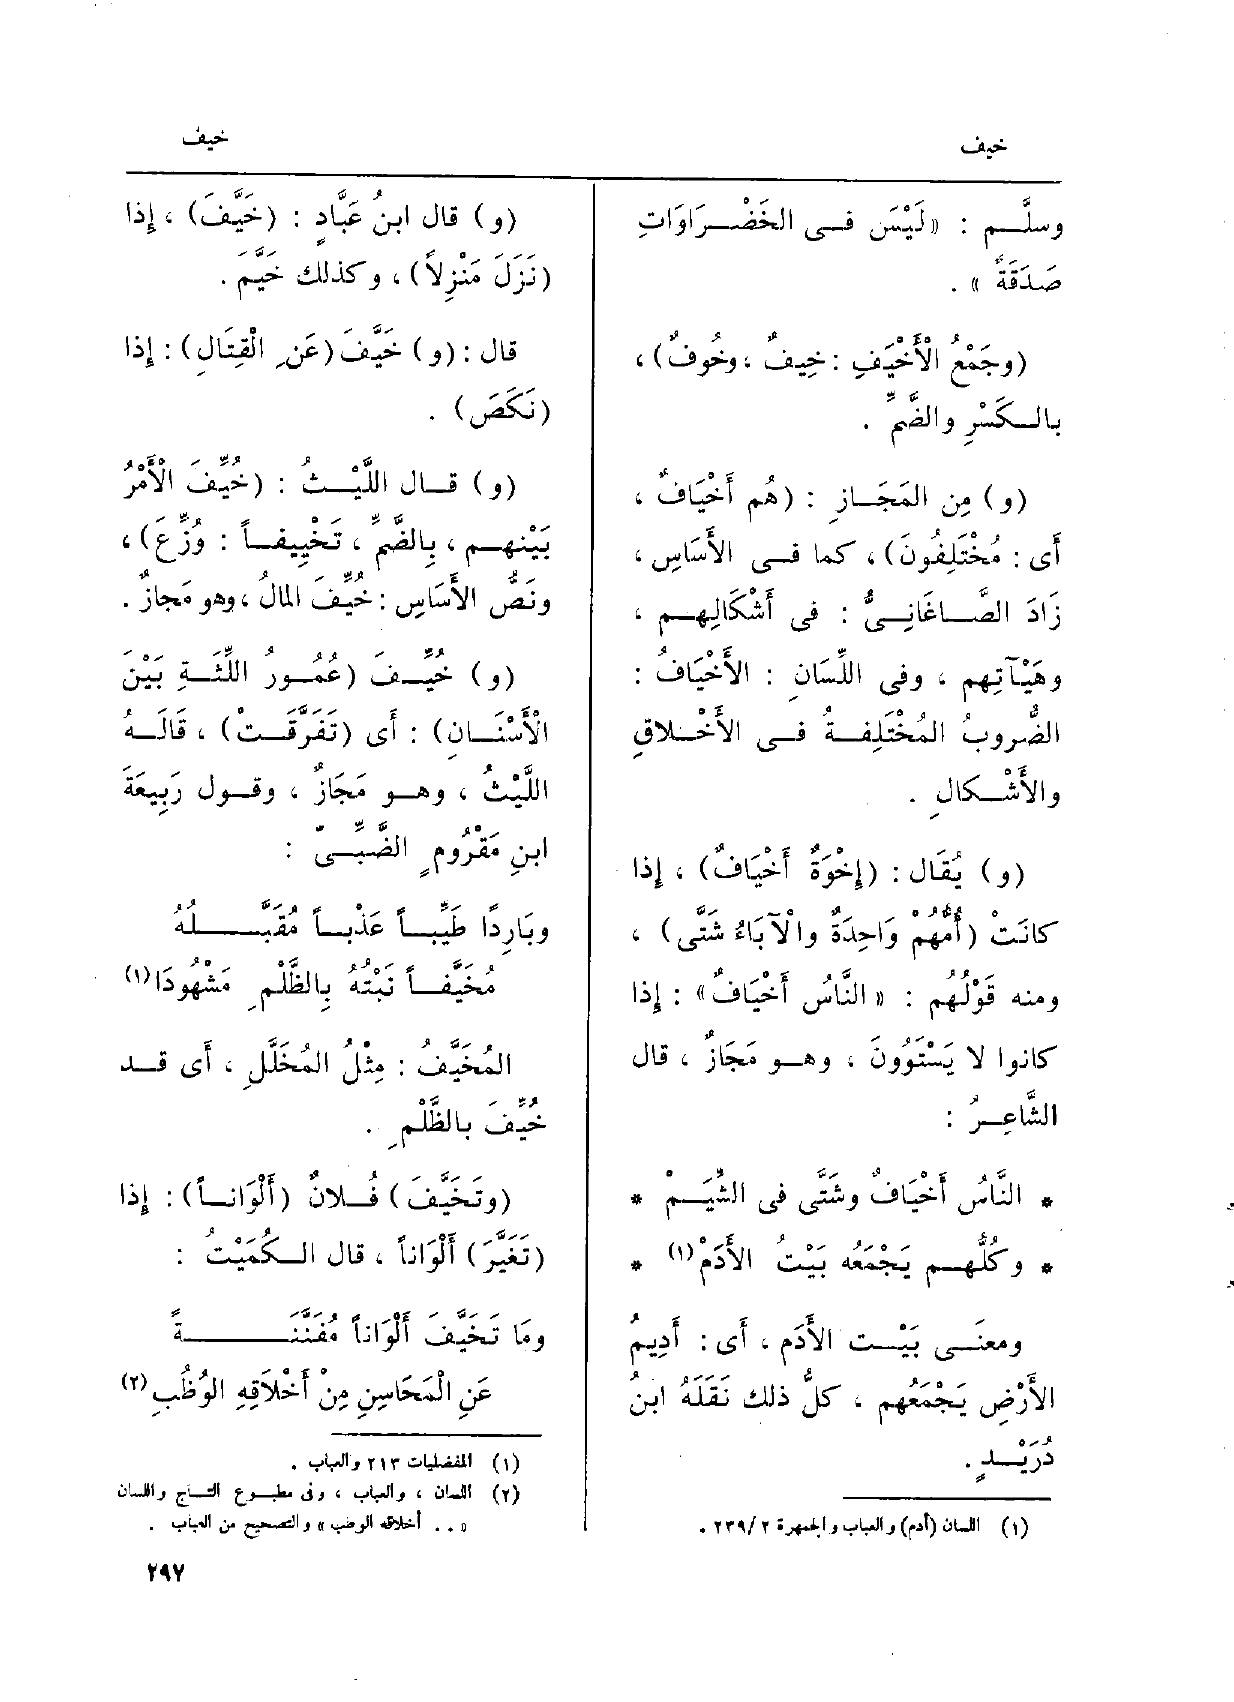 خيف
خيف
وسلَّم : «لَيْسَ فى الخَضْرَاوَاتِ
صَدَقَةٌ » .
(وجَمْعُ الْأَخْيَفِ : خِيفٌ ، وخُوفٌ) ،
بالكَسْرِ والضَّمِّ .
(و) مِن المَجَازِ : (هُم أَخْيَافٌ ،
أى : مُخْتَلِفُونَ) ، كما فى الأَسَاسِ ،
زَادَ الصَّاغَانِىُّ : فى أَشْكَالِهم ،
وهَيْآتِهم ، وفى اللِّسَانِ : الأَخْيَافُ :
الضُّروبُ المُخْتَلِفةُ فى الأَخْلاقِ
والأَشْكالِ .
(و) يُقَال : (إِخْوَةٌ أَخْيَافٌ) ، إِذا
كانَتْ (أُمُّهُمْ وَاحِدَةٌ والْآبَاءُ شَتَّى) ،
ومنه قَوْلُهُم : «النَّاسُ أَخْيَافٌ» : إِذا
كانوا لا يَسْتَوُونَ ، وهو مَجَازٌ ، قال
الشَّاعِرُ :
* النَّاسُ أَخْيَافٌ وشَتَّى فى الشِّيَمْ *
* وكُلُّهم يَجْمَعُه بَيْتُ الأَدَمْ (١) *
ومعنَى بَيْت الأَدَم ، أى : أَدِيمُ
الأَرْضِ يَجْمَعُهم ، كلُّ ذلك نَقَلَهُ ابنُ
دُرَيْدٍ .
(١) اللسان (أدم) والعباب والجمهرة ٢ /٢٣٩ .
(و) قال ابنُ عَبَّادٍ : (خَيَّفَ) ، إِذا
(نَزَلَ مَنْزِلاً) ، وكذلك خَيَّمَ .
قال : (و) خَيَّفَ (عَنِ الْقِتَالِ) : إِذا
(نَكَصَ) .
(و) قال اللَّيْثُ : (خُيِّفَ الْأَمْرُ
بَيْنَهم ، بِالضَّمِّ ، تَخْيِيفاً : وُزِّعَ) ،
ونَصُّ الأَسَاسِ : خُيِّفَ المالُ ، وهو مَجازٌ .
(و) خُيِّفَ (عُمُورُ اللِّثَةِ بَيْنَ
الْأَسْنَانِ) : أى (تَفَرَّقَتْ) ، قَالَهُ
اللَّيْثُ ، وهو مَجَازٌ ، وقول رَبِيعَةَ
ابنِ مَقْرُومٍ الضَّبِّىّ :
وبَارِدًا طَيِّباً عَذْباً مُقَبَّلُهُ
مُخَيَّفاً نَبْتُهُ بِالظَّلْمِ مَشْهُودَا (١)
المُخَيَّفُ : مِثْلُ المُخَلَّلِ ، أى قد
خُيِّفَ بالظَّلْمِ .
(وتَخَيَّفَ) فُلانٌ (أَلْوَاناً) : إِذا
(تَغَيَّرَ) أَلْوَاناً ، قال الكُمَيْتُ :
ومَا تَخَيَّفَ أَلْوَاناً مُفَنَّنَةً
عَنِ الْمَحَاسِنِ مِنْ أَخْلاقِهِ الوُظُبِ (٢)
(١) المفضليات ٢١٣ والعباب .
(٢) اللسان ، والعباب ، وفى مطبوع التاج واللسان
« .. أخلاقه الوضب » والتصحيح من العباب .
٢٩٧